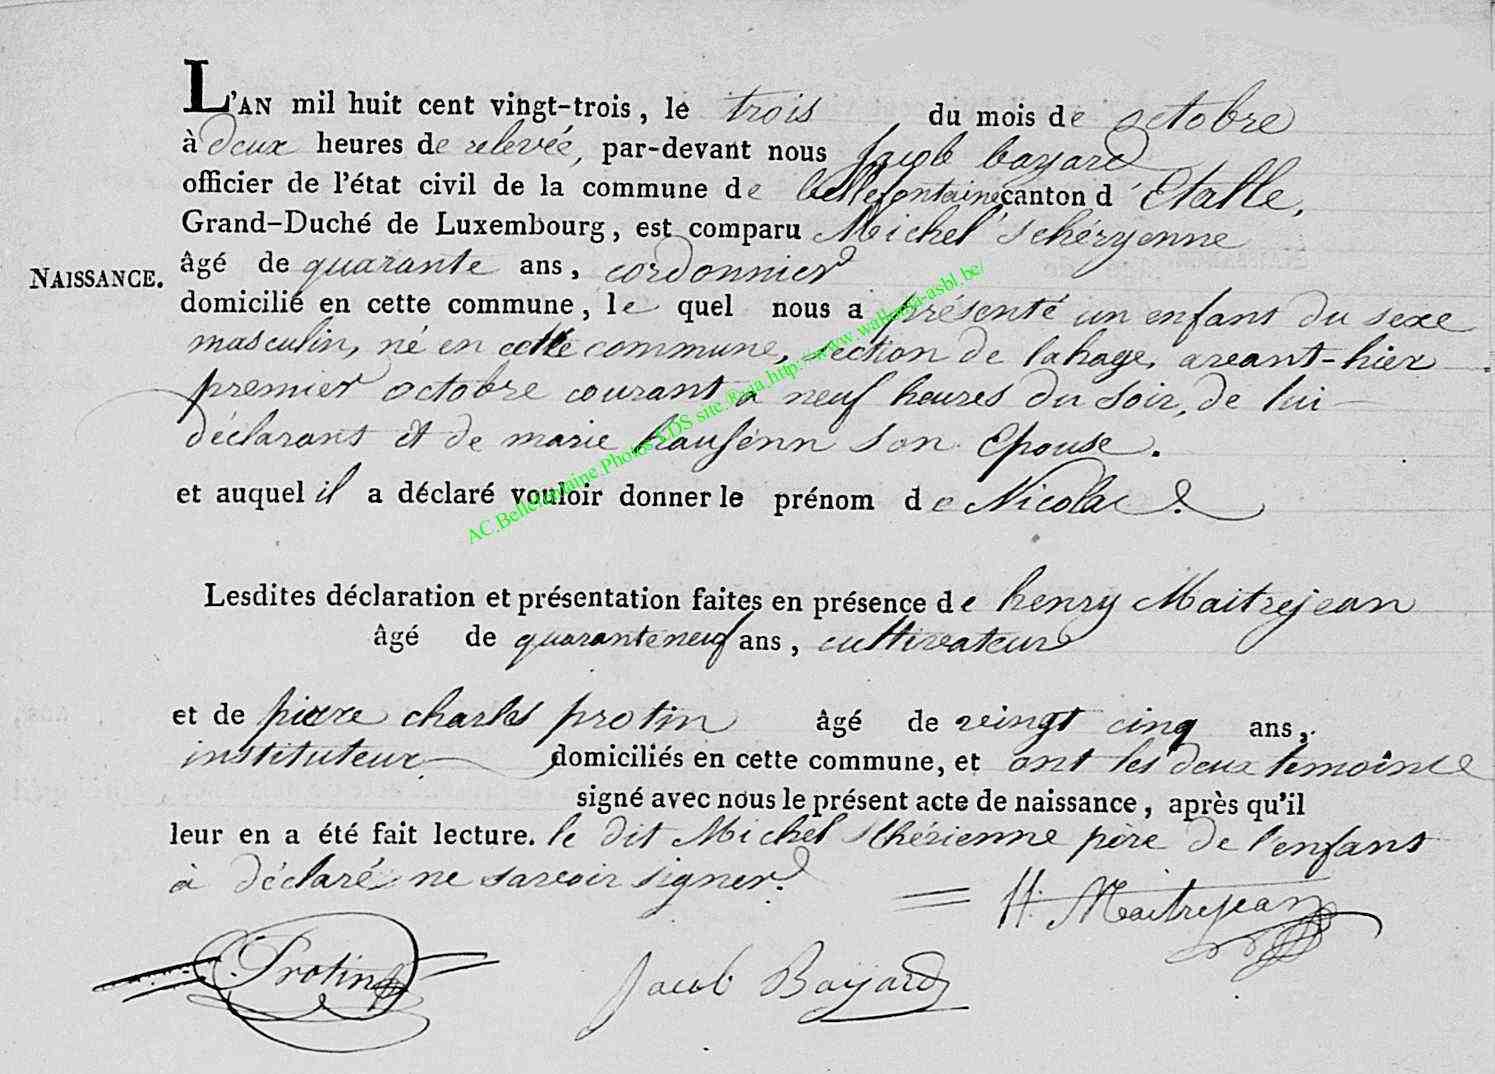 L'AN mil huit cent vingt-trois, le trois du mois de octobre
à deux heures de relevée, par-devant nous Jacob bayard
officier de l'état civil de la commune de bellefontaine canton d'Etalle,
Grand-Duché de Luxembourg, est comparu Michel Schéryenne
NAISSANCE.
âgé de quarante ans, cordonnier
domicilié en cette commune, le quel nous a présenté un enfans du sexe
masculin, né en cette commune, section de lahage, aveant-hier
premier octobre courant a neuf heures du soir, de lui
déclarans et de marie hausénn son Epouse.
et auquel il a déclaré vouloir donner le prénom de Nicolas.
Lesdites déclaration et présentation faites en présence de henry Maitrejean
âgé de quaranteneuf ans, cultivateur
et de pierre charles protin âgé de veingt cinq ans,
instituteur domiciliés en cette commune, et ont les deux temoins
signé avec nous le présent acte de naissance, après qu'il
leur en a été fait lecture. le dit Michel Schérienne père de l'enfans
à déclaré ne savoir signer.
H. Maitrejean
Protin
Jacob Bayard
AC.Bellefontaine.Photos LDS site.Raja.http://www.wallonia-asbl.be/